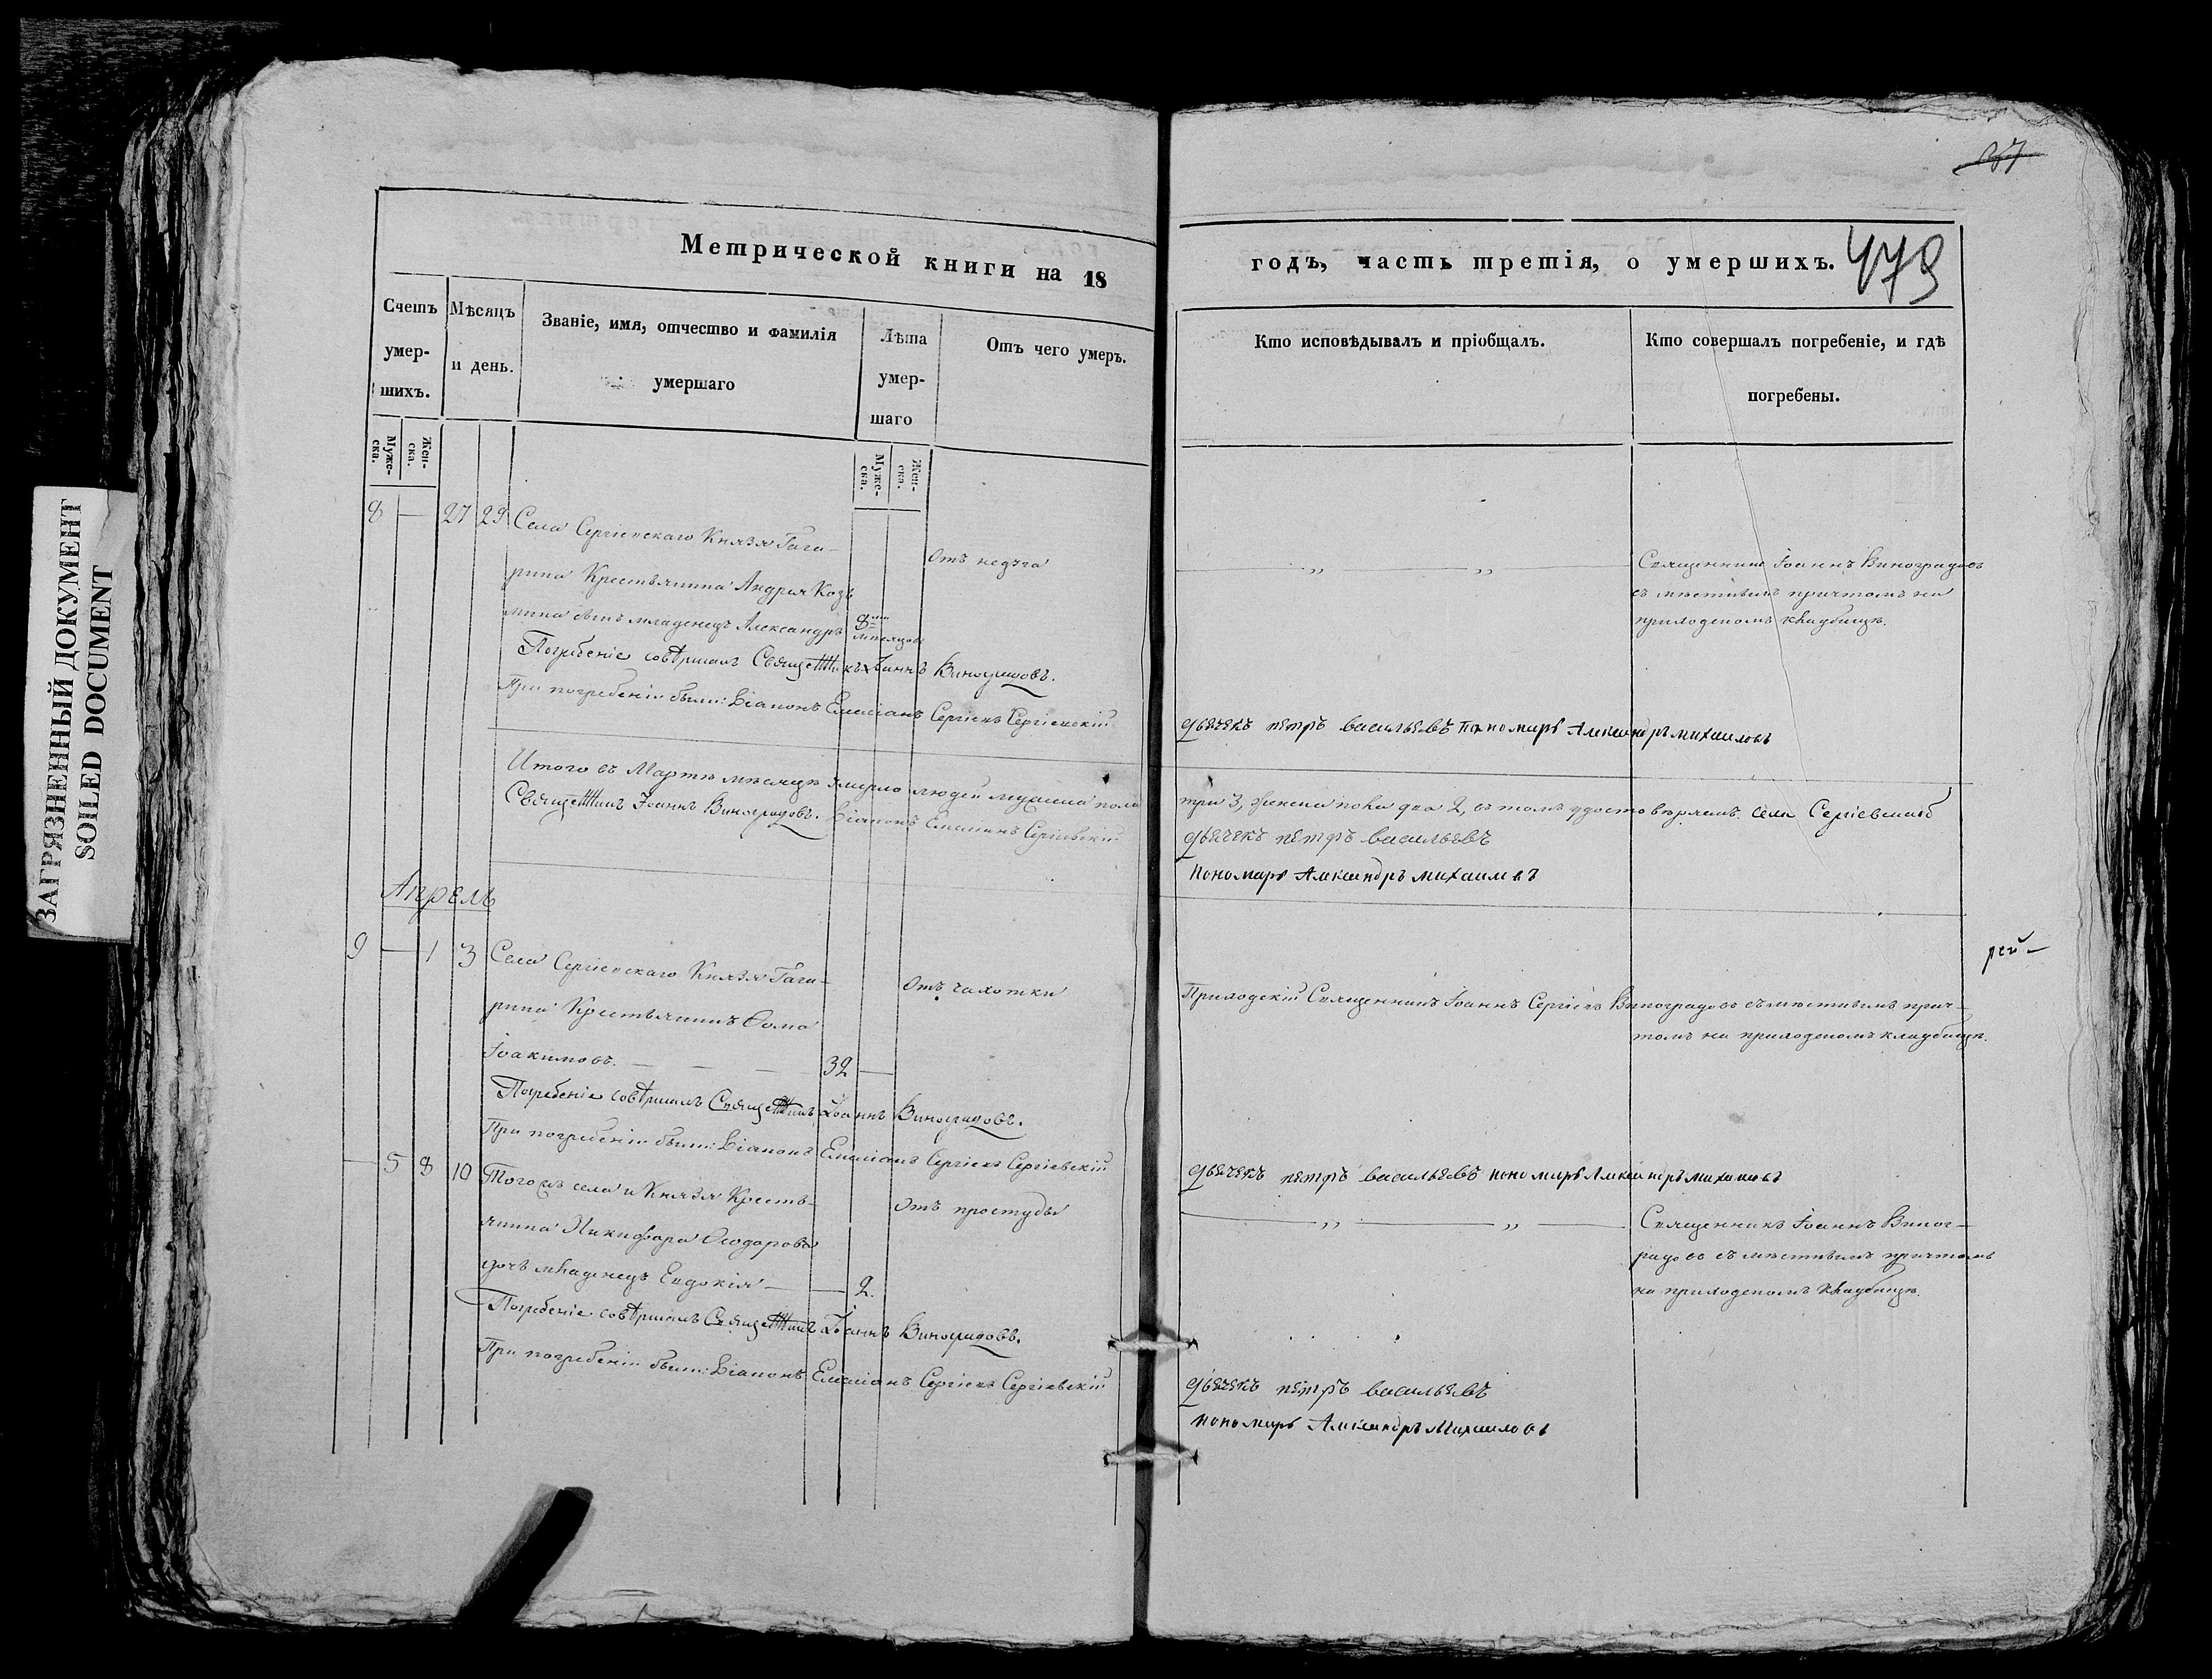 ЗАГРЯЗНЕННЫЙ ДОКУМЕНТ
SOILED DOCUMENT
Метрической книги на 18
Счетъ умер-шихъ.
Мѣсяцъ и день.
Званіе, имя, отчество и фамилія умершаго
Лѣта умер-шаго
Отъ чего умеръ.
Муже-ска.
Жен-ска.
Муже-ска.
Жен-ска.
8 — 27 29 Села Сергіевскаго Князя Гага-
рина Крестьянина Андрея Козь
мина сынъ младенецъ Александръ 8 мѣсяцовъ
Отъ недуга
Погребеніе совершалъ Священникъ Іоаннъ Виноградовъ.
При погребеніи были: Діаконъ Емеліанъ Сергіевъ Сергіевскій
Итого въ Мартѣ мѣсяцѣ умерло людей мужеска пола
Священникъ Іоаннъ Виноградовъ. Діаконъ Емеліанъ Сергіевскій
Апрель
9 — 1 3 Села Сергіевскаго Князя Гага-
рина Крестьянинъ Ѳома
Іоакимовъ. — — — 32 —
Отъ чахотки
Погребеніе совершалъ Священникъ Іоаннъ Виноградовъ.
При погребеніи были: Діаконъ Емеліанъ Сергіевъ Сергіевскій
— 5 8 10 Того жъ села и Князя Кресть-
янина Никифора Ѳеодорова
дочь младенецъ Евдокія — — 2.
Отъ простуды
Погребеніе совершалъ Священникъ Іоаннъ Виноградовъ.
При погребеніи были: Діаконъ Емеліанъ Сергіевъ Сергіевскій
годъ, часть третія, о умершихъ.
479
Кто исповѣдывалъ и пріобщалъ.
Кто совершалъ погребеніе, и гдѣ погребены.
— „ — „ —
Священникъ Іоаннъ Виноградовъ
съ мѣстнымъ причтомъ на
приходскомъ кладбищѣ.
дьячекъ петръ васильевъ пономарь Александръ михаиловъ
три 3, женска пола два 2, въ томъ удостовѣряемъ. села Сергіевскаго
дьячекъ петръ васильевъ
пономарь Александръ михаиловъ
Приходскій Священникъ Іоаннъ Сергіевъ Виноградовъ съ мѣстнымъ прич-
томъ на приходскомъ кладбищѣ.
дьячекъ петръ васильевъ пономарь Александръ михаиловъ
— „ — „ —
Священникъ Іоаннъ Виног-
радовъ съ мѣстнымъ причтомъ
на приходскомъ кладбищѣ.
дьячекъ петръ васильевъ
пономарь Александръ Михаиловъ